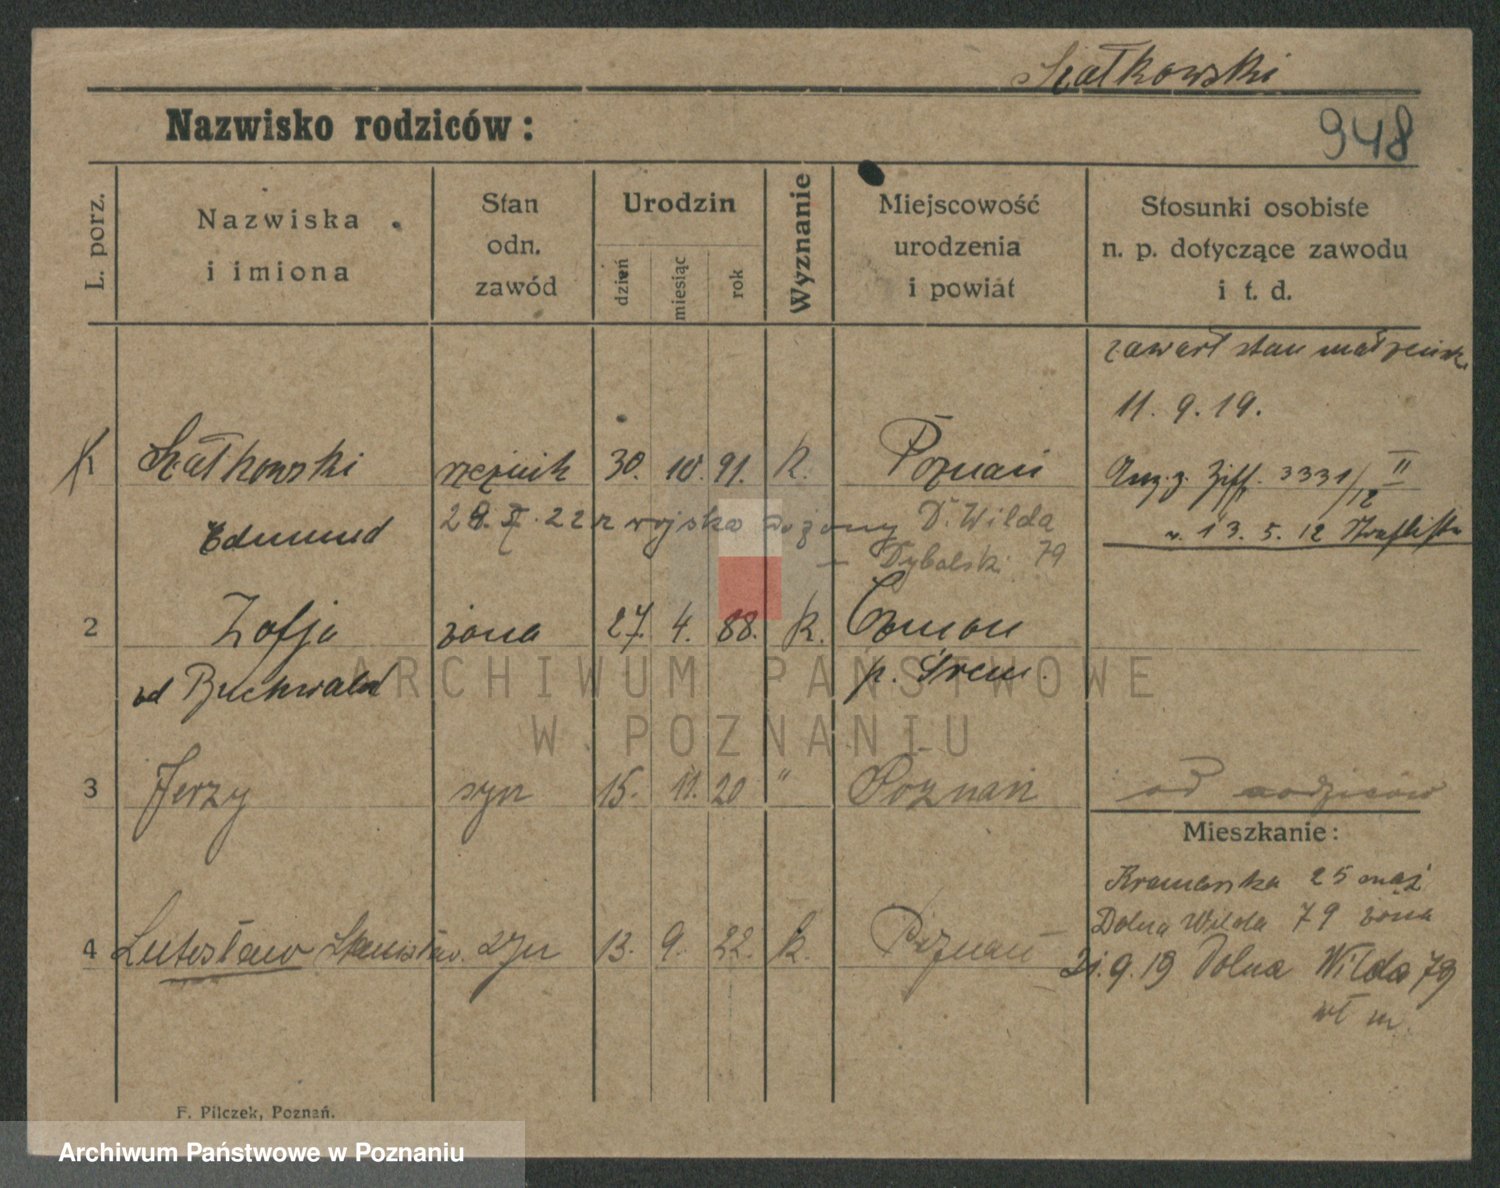 Szałkowski
Nazwisko rodziców:
948
L. porz.
Nazwiska
i imiona
Stan
odn.
zawód
Urodzin
dzień
miesiąc
rok
Wyznanie
Miejscowość
urodzenia
i powiat
Stosunki osobiste
n. p. dotyczące zawodu
i t. d.
zawarł stan małżeńsk.
11. 9. 19.
1 Szałkowski rzeźnik 30. 10. 91. k. Poznań
Ziff. 3331/12 II
Edmund
22 r wojska do żony D. Wilda
13. 5. 12
– Dybalski 79
2 Zofja żona 27. 4. 88. k.
od Buchwald p. Śrem.
3 Jerzy syn 15. 11. 20 " Poznań od rodziców
Mieszkanie:
Kramarska 25 mąż
Dolna Wilda 79 żona
4 Lutosław Stanisław. syn 13. 9. 22. k. Poznań
21. 9. 19 Dolna Wilda 79
wł m.
F. Pilczek, Poznań.
ARCHIWUM PAŃSTWOWE
W POZNANIU
Archiwum Państwowe w Poznaniu